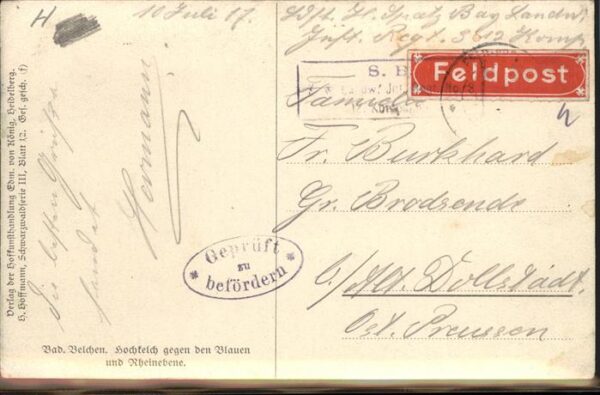 10 Juli 17.
Ldst. H. Spatz Bay Landw.
Inft. Regt. 3 612 Komp
Feldpost
S. B.
Landw. Inf.
Familie
Fr. Burkhard
Gr. Brodsende
b/Alt. Dollstädt,
Ost. Preussen
Die besten Grüße
sendet
Hermann
* Geprüft *
zu
befördern
Bad. Belchen. Hochkelch gegen den Blauen
und Rheinebene.
Verlag der Hofkunsthandlung Edm. von König, Heidelberg.
H. Hoffmann, Schwarzwaldserie III, Blatt 12. Ges. gesch. (f)